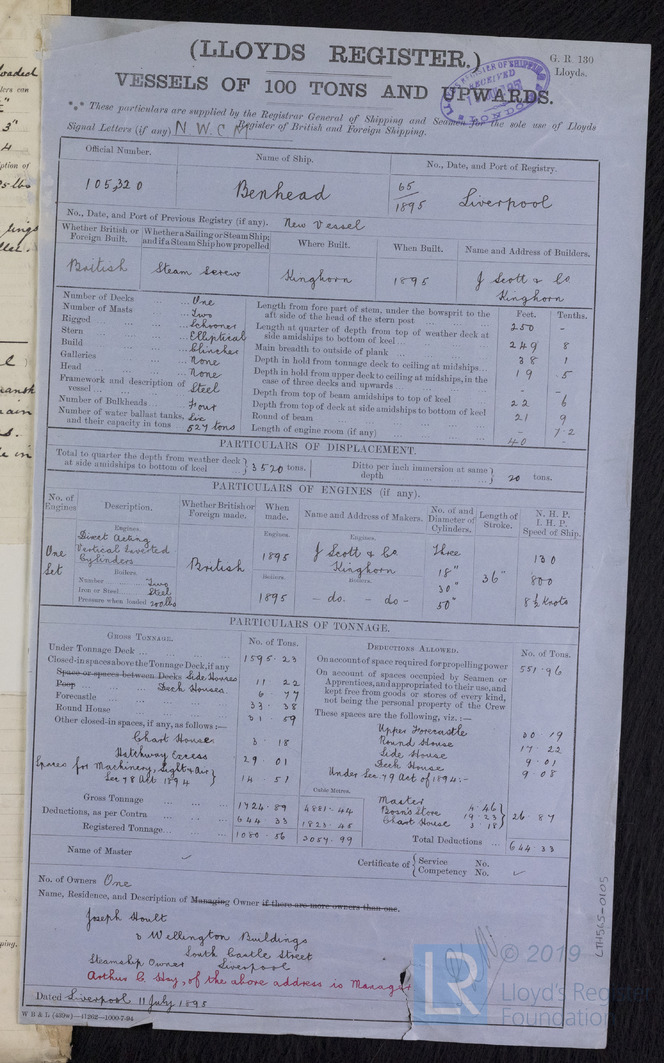 (LLOYDS REGISTER.)
G. R. 130
Lloyds.
VESSELS OF 100 TONS AND UPWARDS.
RECEIVED
*** These particulars are supplied by the Registrar General of Shipping and Seamen for the sole use of Lloyds
Register of British and Foreign Shipping.
Signal Letters (if any) N.W.C.M
Official Number. Name of Ship. No., Date, and Port of Registry.
105,320 Benhead 65/1895 Liverpool
No., Date, and Port of Previous Registry (if any). New Vessel
Whether British or Foreign Built. Whether a Sailing or Steam Ship; and if a Steam Ship how propelled Where Built. When Built. Name and Address of Builders.
British Steam Screw Kinghorn 1895 J Scott & Co Kinghorn
Number of Decks ... One
Number of Masts ... Two
Rigged ... Schooner
Stern ... Elliptical
Build ... Clincher
Galleries ... None
Head ... None
Framework and description of vessel ... Steel
Number of Bulkheads ... Four
Number of water ballast tanks, and their capacity in tons Six 527 tons
Feet. Tenths.
Length from fore part of stem, under the bowsprit to the aft side of the head of the stern post 250 -
Length at quarter of depth from top of weather deck at side amidships to bottom of keel 249 8
Main breadth to outside of plank 38 1
Depth in hold from tonnage deck to ceiling at midships 19 5
Depth in hold from upper deck to ceiling at midships, in the case of three decks and upwards - -
Depth from top of beam amidships to top of keel 22 6
Depth from top of deck at side amidships to bottom of keel 21 9
Round of beam - 7.2
Length of engine room (if any) 40 -
PARTICULARS OF DISPLACEMENT.
Total to quarter the depth from weather deck at side amidships to bottom of keel } 3520 tons. Ditto per inch immersion at same depth } 20 tons.
PARTICULARS OF ENGINES (if any).
No. of Engines Description. Whether British or Foreign made. When made. Name and Address of Makers. No. of and Diameter of Cylinders. Length of Stroke. N. H. P. I. H. P. Speed of Ship.
One Set
Engines.
Direct Acting
Vertical Inverted
Cylinders
Boilers.
Number Two
Iron or Steel Steel
Pressure when loaded 200 lbs
British
Engines. 1895
Boilers. 1895
Engines. J Scott & Co Kinghorn
Boilers. - do. - do -
Three
18"
30"
50"
36"
130
800
8½ Knots
PARTICULARS OF TONNAGE.
GROSS TONNAGE. No. of Tons.
Under Tonnage Deck ... 1595.23
Closed-in spaces above the Tonnage Deck, if any
Space or spaces between Decks Side Houses 11 22
Poop Deck Houses 6 77
Forecastle 33.38
Round House 31 59
Other closed-in spaces, if any, as follows:—
Chart House 3.18
Hatchway Excess 29.01
Spaces for Machinery, Light & Air } Sec 78 Act 1894 14.51
Cubic Metres.
Gross Tonnage 1724.89 4881.44
Deductions, as per Contra 644 33 1823.45
Registered Tonnage 1080.56 3057.99
DEDUCTIONS ALLOWED. No. of Tons.
On account of space required for propelling power 551.96
On account of spaces occupied by Seamen or Apprentices, and appropriated to their use, and kept free from goods or stores of every kind, not being the personal property of the Crew
These spaces are the following, viz.:—
Upper Forecastle 19
Round House 17.22
Side House 9.01
Deck House 9.08
Under Sec 79 Act of 1894:-
Master 4.46
Bosn's Store 19.23
Chart House 3.18
} 26.87
Total Deductions ... 644.33
Name of Master
Certificate of { Service No.
Competency No.
No. of Owners One
Name, Residence, and Description of Managing Owner if there are more owners than one.
Joseph Hoult
3 Wellington Buildings
South Castle Street
Steamship Owner Liverpool
Arthur C. Hay, of the above address is Manager
Dated Liverpool 11 July 1895
LTH565-0105
LR
© 2019
Lloyd's Register
Foundation